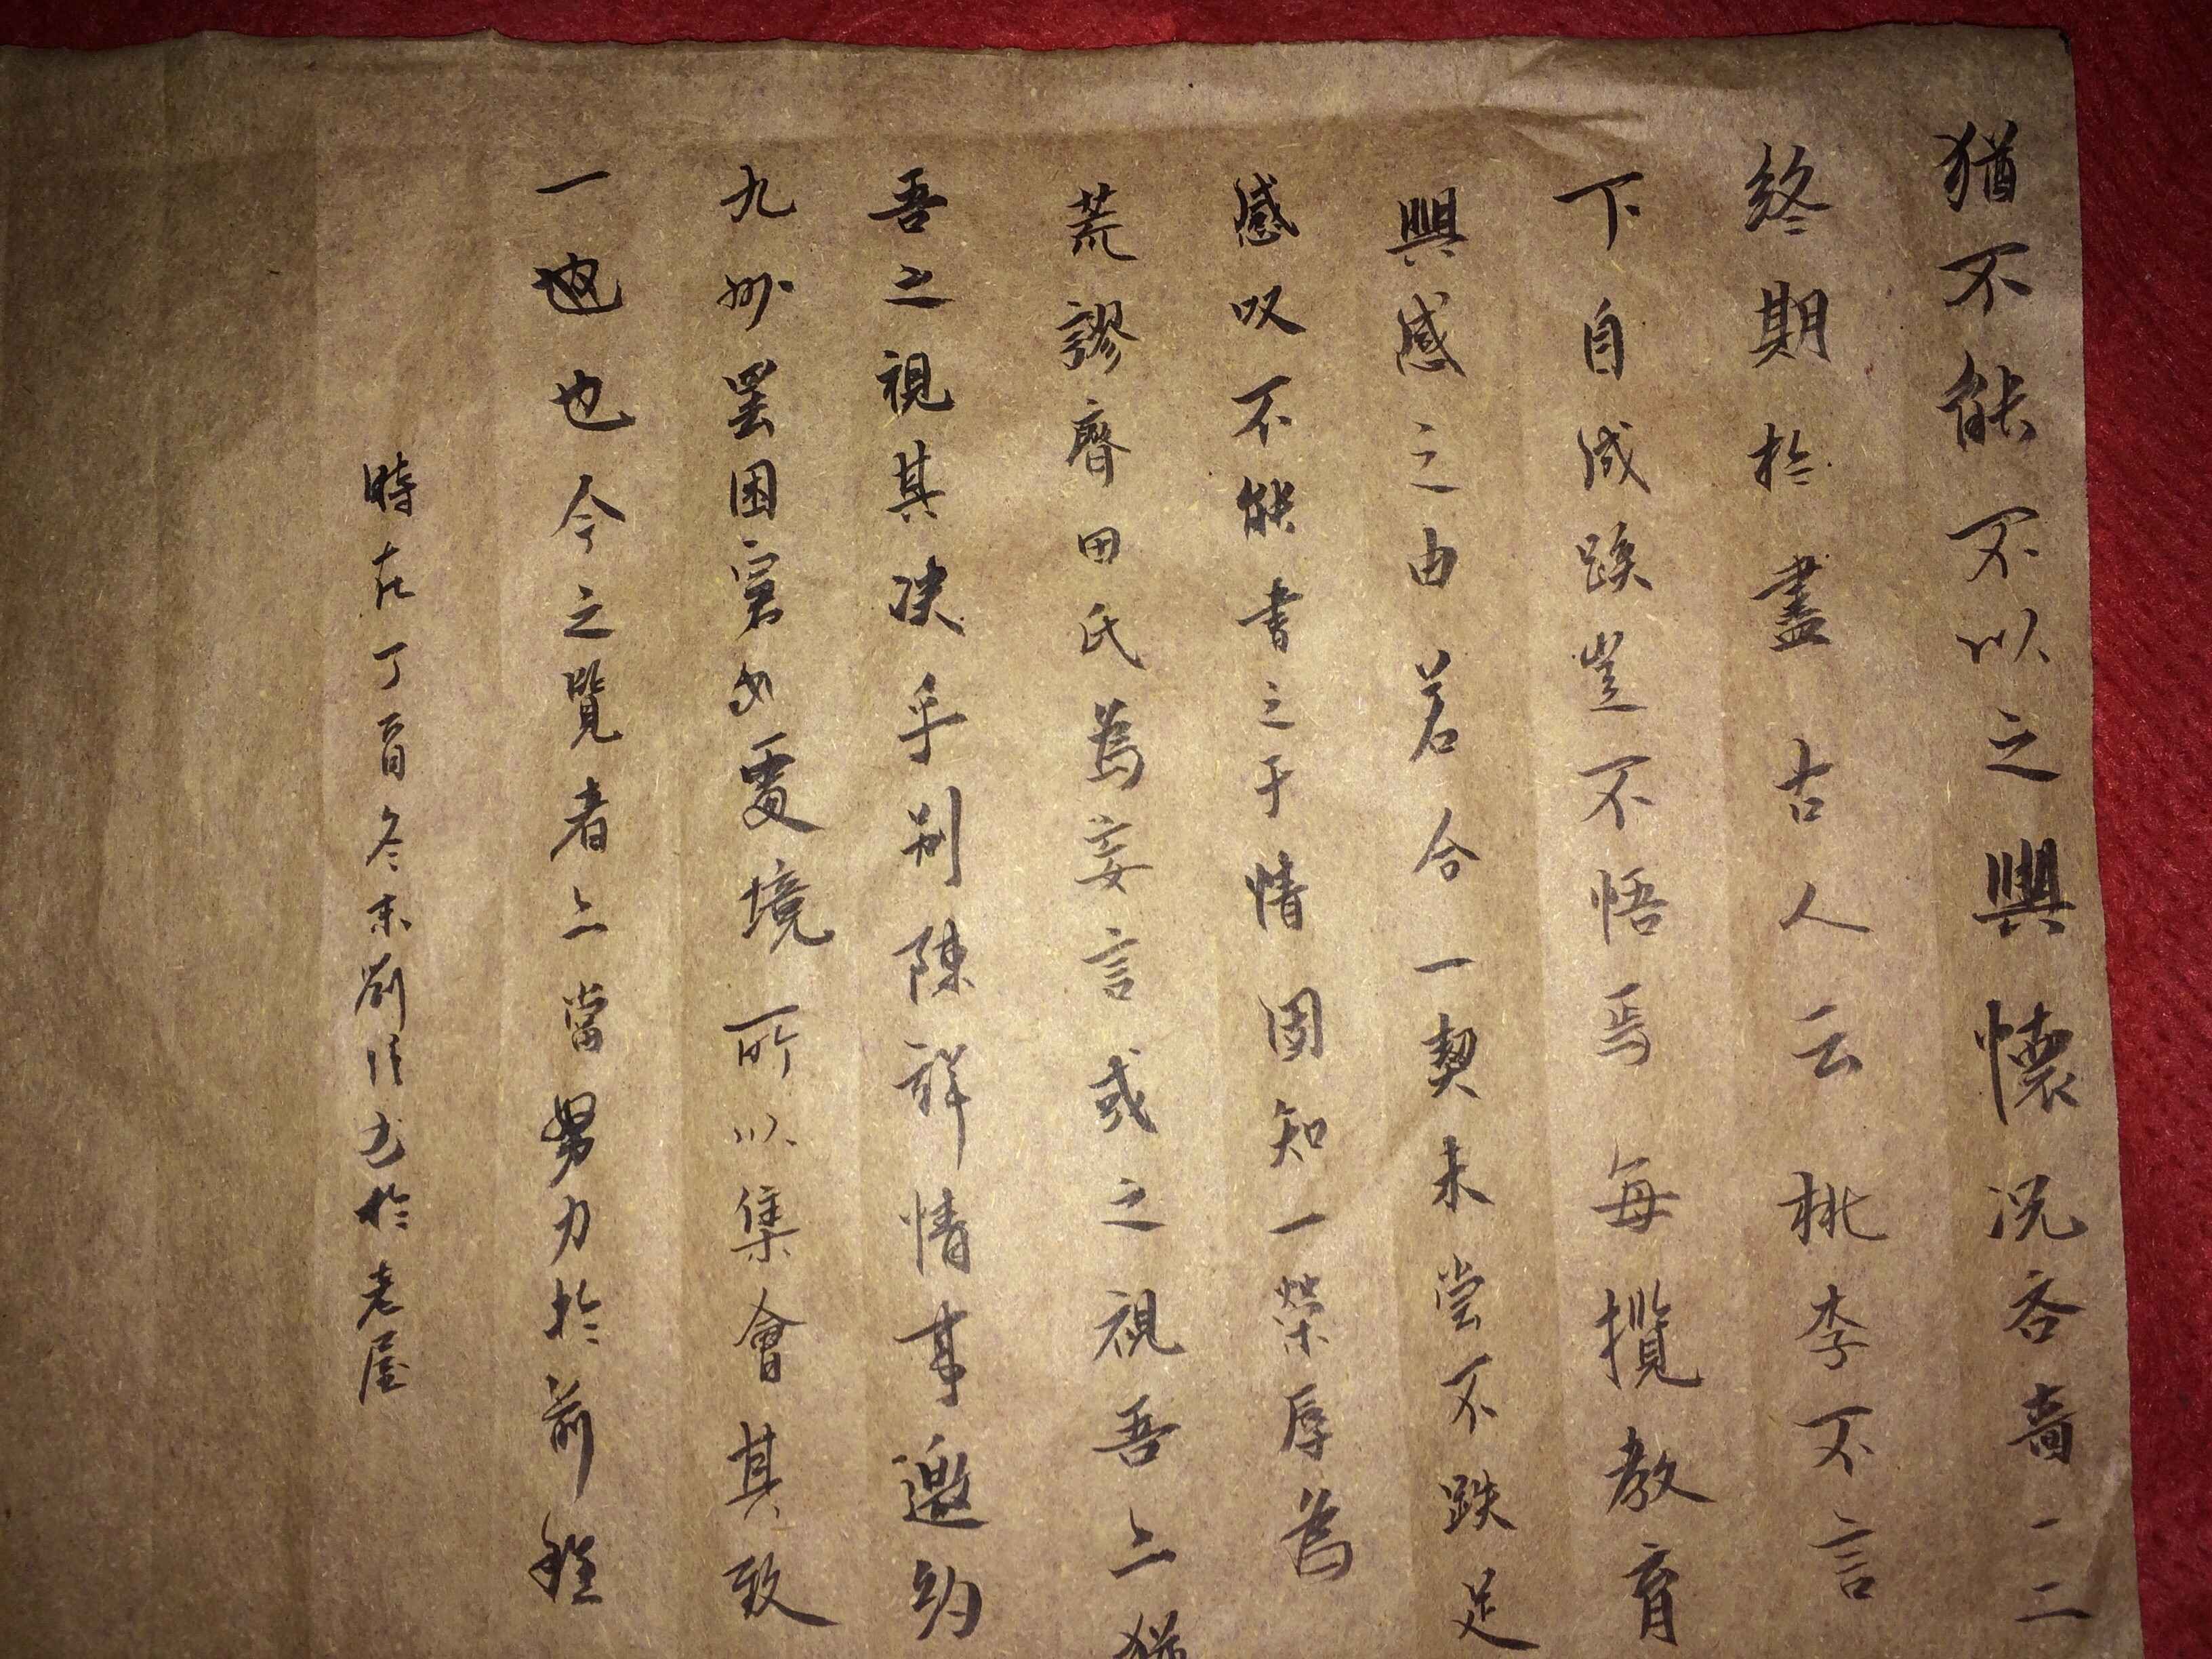 猶不能不以之興懷況吝嗇一二
終期於盡古人云桃李不言
下自成蹊豈不悟焉每攬教育
興感之由若合一契未嘗不跌足
感叹不能書之于情固知一榮辱為
荒謬齊田氏為妄言或之視吾亦猶
吾之視其决乎别陳祥情事邀約
九妙罢困窘女處境所以集會其致
一也今之覽者亦當努力於前程
時在丁酉冬末劉书於老屋